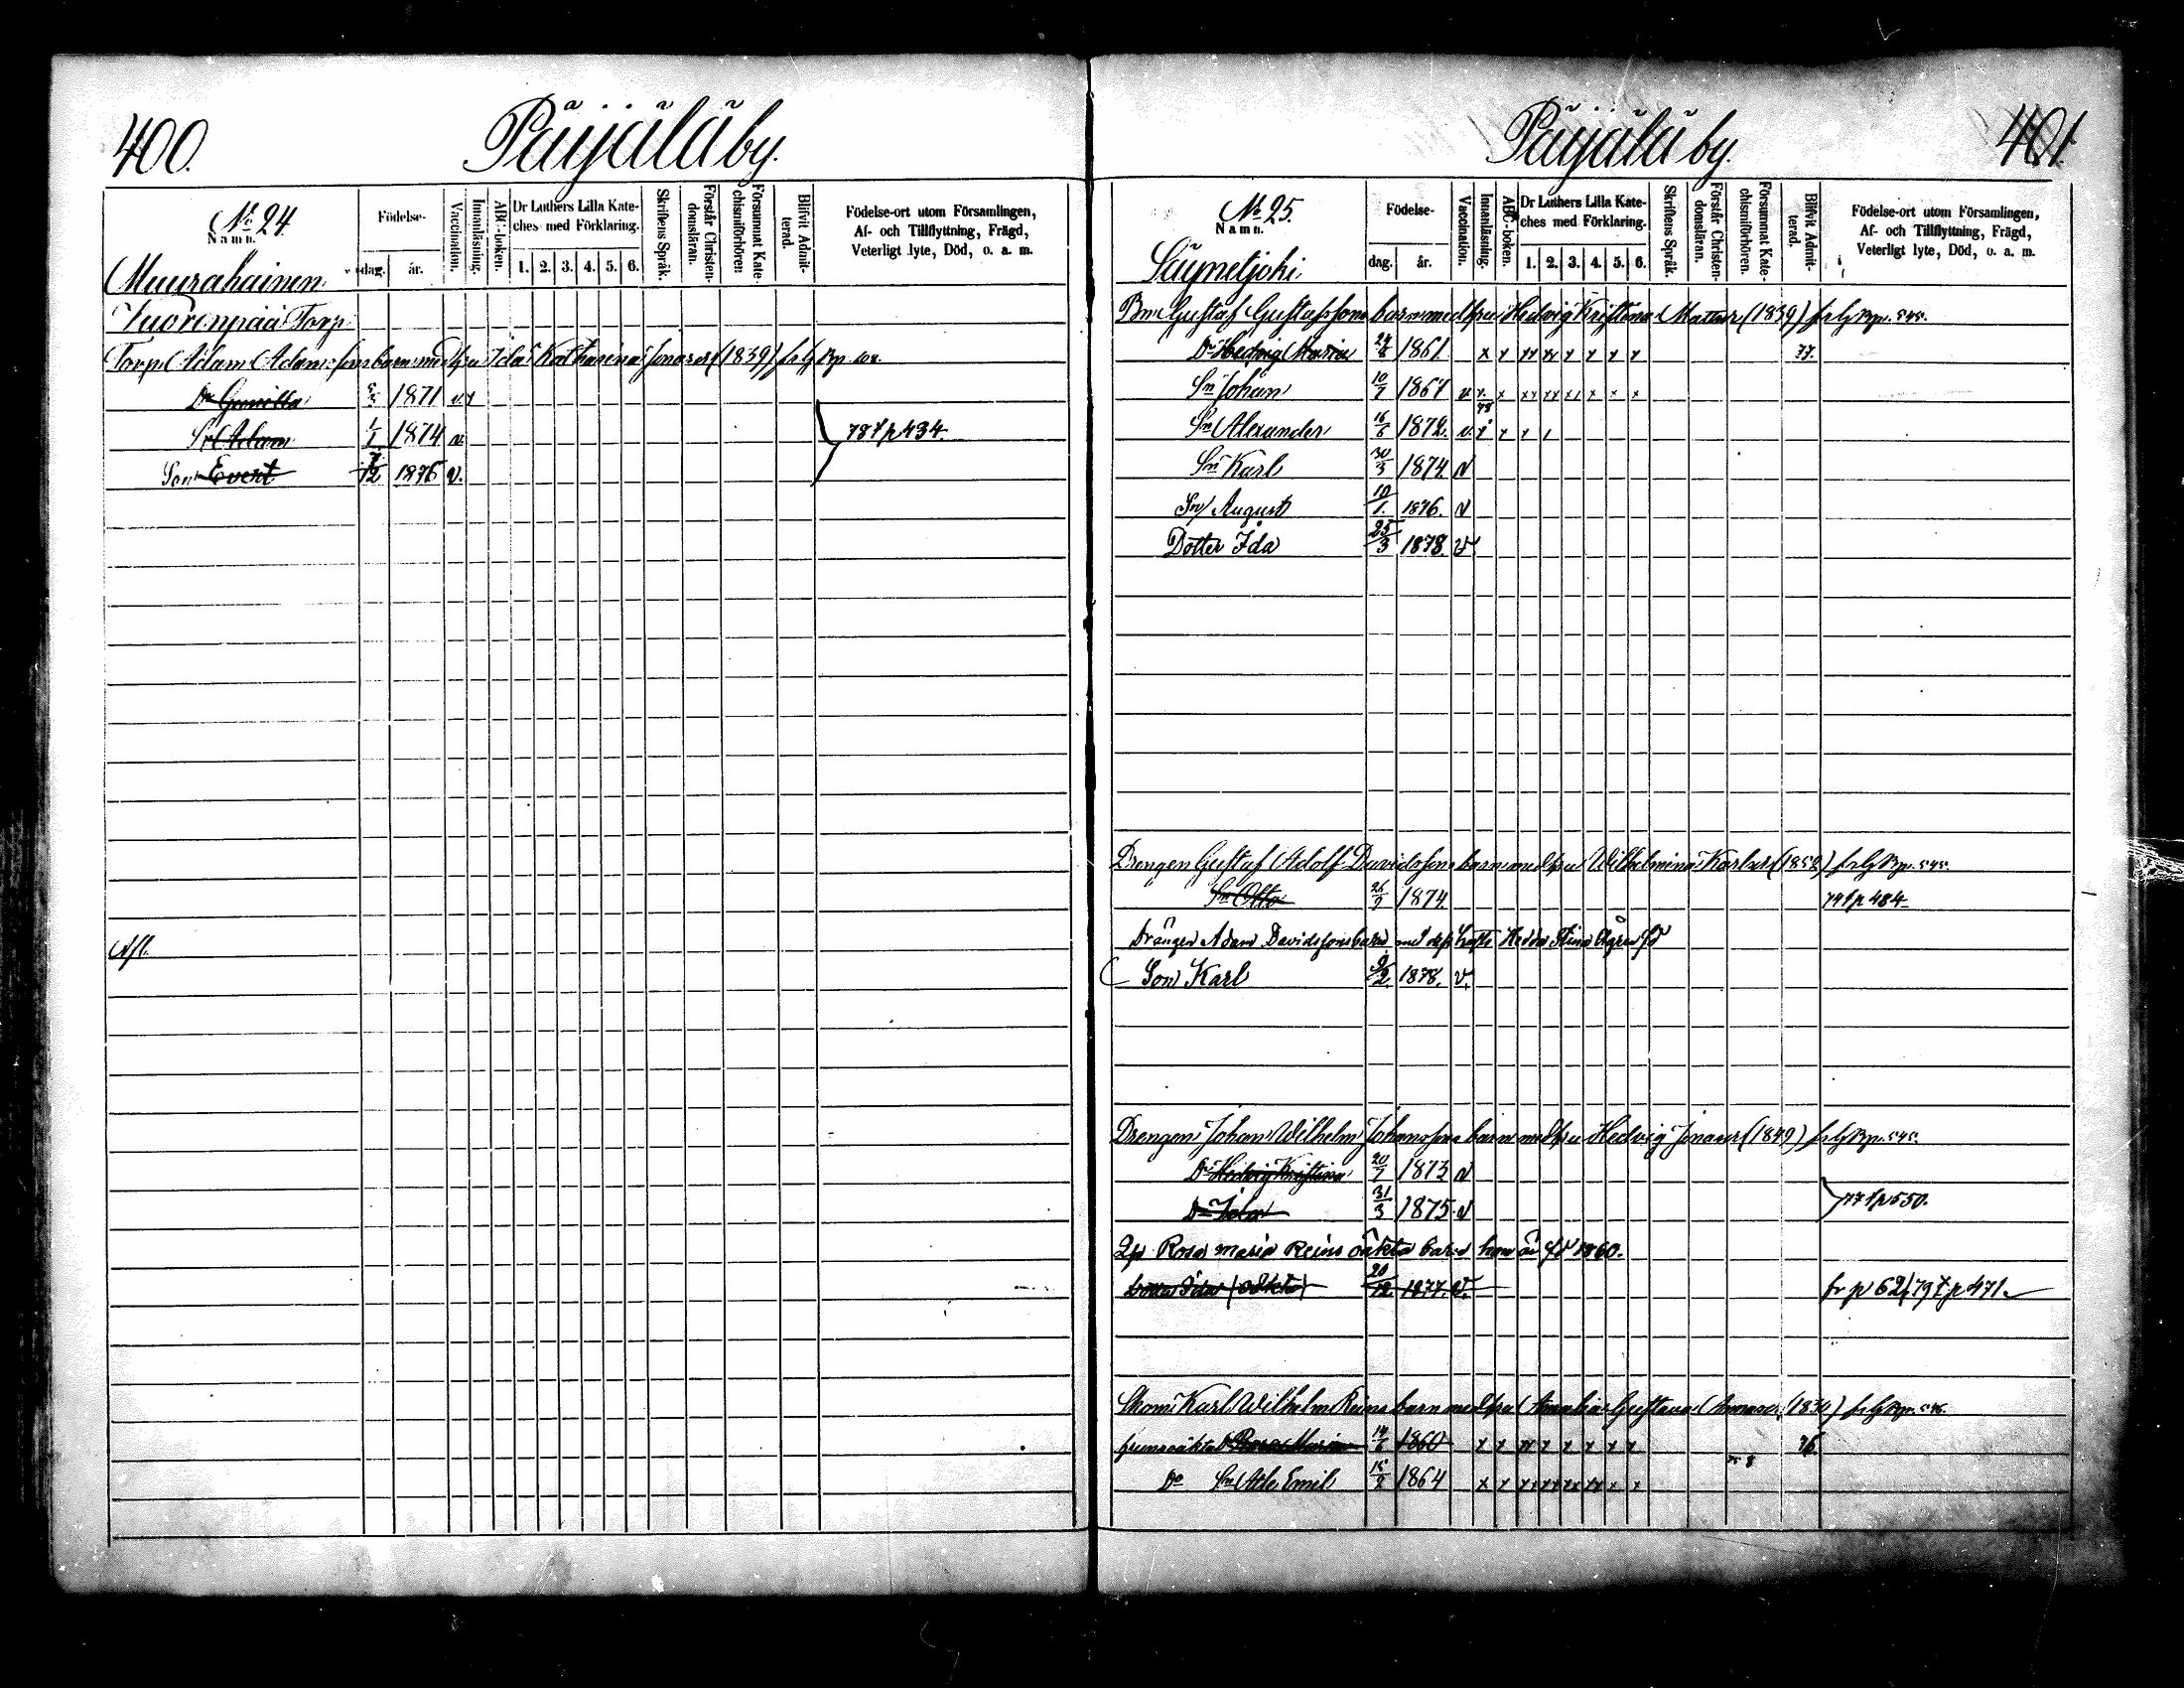 400.
Päijälä by.
No 24
Namn.
Födelse-
dag.
år.
Vaccination.
Innanläsning.
ABC-boken.
Dr Luthers Lilla Kate-
ches med Förklaring.
1. 2. 3. 4. 5. 6.
Skriftens Språk.
Förstår Christen-
domsläran.
Försummat Kate-
chismiförhören.
Blifvit Admit-
terad.
Födelse-ort utom Församlingen,
Af- och Tillflyttning, Frägd,
Veterligt lyte, Död, o. a. m.
Muurahainen
Vuorenpää Torp
Torp. Adam Adamsson barn med hu Ida Katharina Jonasr (1839)
Dr Gunilla 1871
Sn Adam 1/1 1874 v.
78 f p 434.
Son Evert 7/12 1876 v.
401.
Päijälä by.
No 25.
Namn.
Födelse-
dag.
år.
Vaccination.
Innanläsning.
ABC-boken.
Dr Luthers Lilla Kate-
ches med Förklaring.
1. 2. 3. 4. 5. 6.
Skriftens Språk.
Förstår Christen-
domsläran.
Försummat Kate-
chismiförhören.
Blifvit Admit-
terad.
Födelse-ort utom Församlingen,
Af- och Tillflyttning, Frägd,
Veterligt lyte, Död, o. a. m.
Säynetjoki
Bn Gustaf Gustafsson barn med hu Hedvig Kristina Mattsr (1839) 545.
Dr Hedvig Maria 1861 x x xx xx x x x x 77.
Sn Johan 10/7 1867 v x x xx xx xx x x x
Sn Alexander 16/6 1872. v. x x x
Sn Karl 30/3 1874 v
Sn August 10/1. 1876. v
Dotter Ida 25/3 1878 v
Drengen Gustaf Adolf Davidsson barn med hu Wilhelmina Karlsr (1852) 545.
Sn Otto 26/9 1874 p 484
Drängen Adam Davidsson barn med
Son Karl 9/2 1878. v.
Drengen Johan Wilhelm Johansson barn med hu Hedvig Jonasr (1849) 545.
Dr Hedvig Kristina 20/7 1873 v
Dr Ida 31/3 1875 v
77 f p 550.
Rosa Maria Reins oäkta barn hon är fd 1860.
Dotter Ida (oäkta) 20/12. 1877. v. fr p 62/79 f p 471
Skom. Karl Wilhelm Reins barn med hu Amalia Gustava (1834)
Dr Rosa Maria 14/6 1860 x x xx x x x x x 76.
Do Sn Atle Emil 1864 x x xx xx xx xx x x